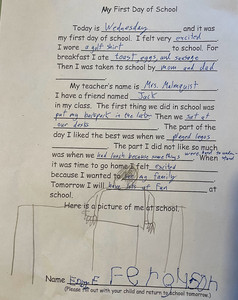 My First Day of School
Today is Wednesday and it was
my first day of school. I felt very excited
I wore a golf shirt to school. For
breakfast I ate toast eggs, and sausage
Then I was taken to school by mom and dad
My teacher's name is Mrs. Malmquist
I have a friend named Jack
in my class. The first thing we did in school was
put my backpack in the Then we sat at
our desks. The part of the
day I liked the best was when we played legos
. The part I did not like so much
was when we had lunch because some things were hard to
. When
it was time to go home I felt excited
because I wanted to see my family
Tomorrow I will have lots of fun at
school.
Here is a picture of me at school.
Name
(Please fill out with your child and return to school tomorrow.)